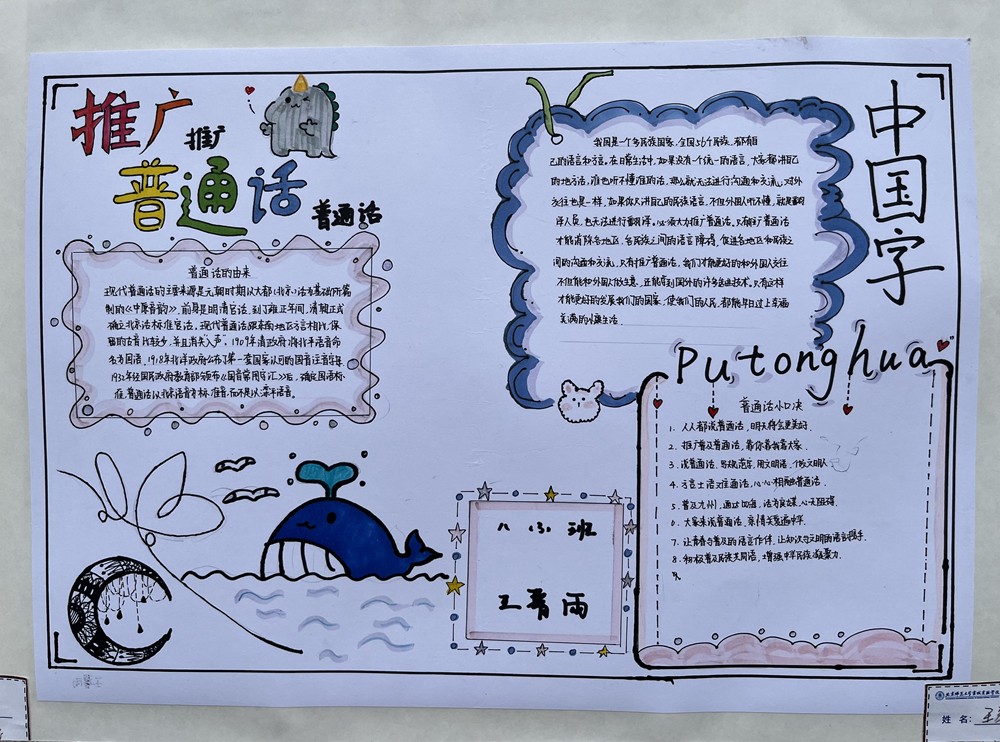 推广
推广
普通话
普通话
普通话的由来
现代普通话的主要来源是元朝时期以大都(北京)话为基础所编
制的《中原音韵》。前身是明清官话,到了雍正年间,清朝正式
确立北京话标准官话。现代普通话跟东南地区方言相比,保
留的古音比较少,并且消失入声。1909年清政府将北平语音命
名为国语,1918年北洋政府公布了第一套国家认可的国音注音字母
1932年经国民政府教育部颁布《国音常用字汇》后,确定国语标
准。普通话以北京语音为标准音,而不是以北平语音。
我国是一个多民族国家,全国56个民族,都有自
己的语言和方言。在日常生活中,如果没有一个统一的语言,大家都讲自己
的地方话,谁也听不懂谁的话,那么就无法进行沟通和交流。对外
交往也是一样,如果你只讲自己的民族语言,不但外国人听不懂,就是翻
译人员,也无法进行翻译。必须大力推广普通话。只有推广普通话
才能消除各地区、各民族之间的语言障碍,促进各地区和民族之
间的沟通和交流。只有推广普通话,我们才能更好的和外国人交往
不但能和外国人做生意,还能学到国外的许多先进技术。只有这样
才能更好的发展我们的国家,使我们的人民,都能早日过上幸福
美满的小康生活
中国字
Putonghua
普通话小口决
1. 人人都说普通话,明天将会更美好.
2. 推广普及普通话,靠你靠我靠大家.
3. 说普通话,写规范字,用文明语,做文明人
4. 方言土语难通话,心心相融普通话.
5. 普及九州,通达四海,话为食谋,心无阻碍.
6. 大家来说普通话,亲情关爱遍中华.
7. 让青春与普及的语言作伴,让知识与文明的语言携手.
8. 积极普及民族共同语,增强中华民族凝聚力.
八(3)班
王雨
姓 名: